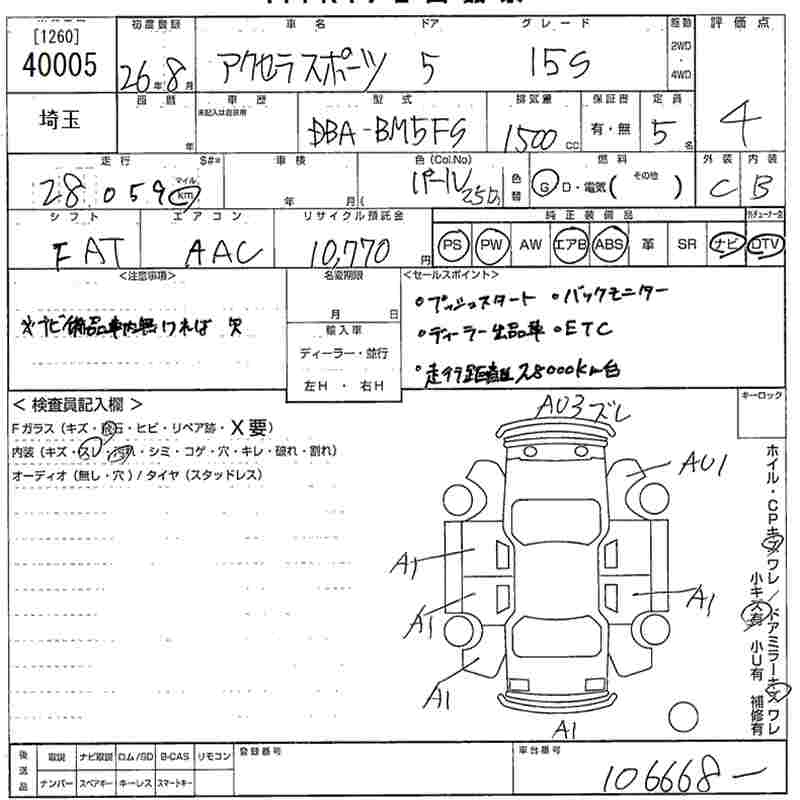 [1260]
40005
初度登録
26年8月
車名
アクセラスポーツ
ドア
5
グレード
15S
駆動
2WD
・
4WD
評価点
4
埼玉
西暦
年
車歴
未記入は自家用
型式
DBA-BM5FS
排気量
1500 CC
保証書
有・無
定員
5名
走行
S#*
28,059
マイル
km
車検
年 月
色 (Col.No)
パール
(25D)
色替
燃料
G D・電気 ( その他 )
外装
C
内装
B
シフト
FAT
エアコン
AAC
リサイクル預託金
10,770円
純正装備品
PS PW AW エアB ABS 革 SR ナビ DTV
<注意事項>
※ナビ備品車内無ければ 欠
名変期限
月 日
輸入車
ディーラー・並行
左H ・ 右H
<セールスポイント>
○プッシュスタート ○バックモニター
○ディーラー出品車 ○ETC
○走行距離28000km台
< 検査員記入欄 >
Fガラス (キズ・飛石・ヒビ・リペア跡・X要)
内装 (キズ・スレ・汚れ・シミ・コゲ・穴・キレ・破れ・割れ)
オーディオ (無し・穴) / タイヤ (スタッドレス)
キーロック
AU3ズレ
AU1
A1
A1
A1
A1
A1
ホイル・CPキズワレ/ドアミラーキズワレ
小キズ有 小U有 補修有
後送品
取説 ナビ取説 ロム/SD B-CAS リモコン
ナンバー スペアキー キーレス スマートキー
登録番号
車台番号
106668-